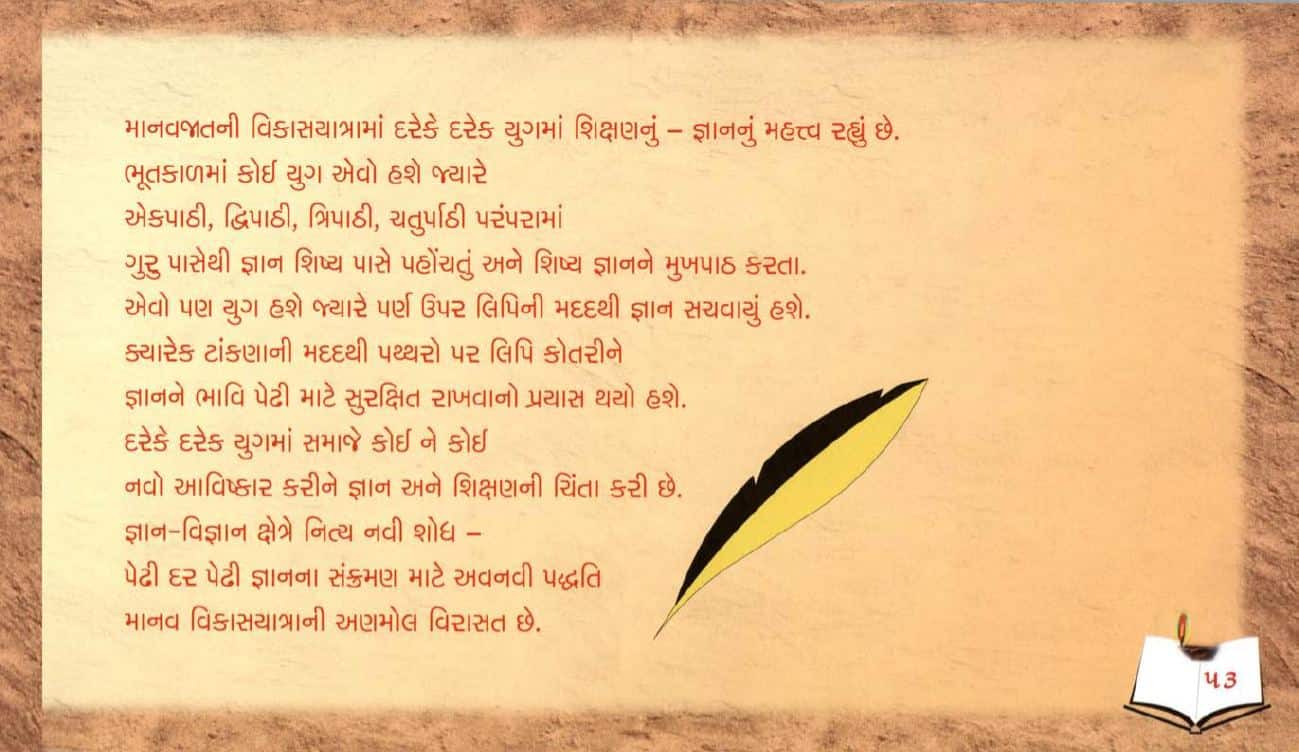 માનવજાતની વિકાસયાત્રામાં દરેકે દરેક યુગમાં શિક્ષણનું – જ્ઞાનનું મહત્ત્વ રહ્યું છે.
ભૂતકાળમાં કોઈ યુગ એવો હશે જ્યારે
એકપાઠી, દ્વિપાઠી, ત્રિપાઠી, ચતુર્પાઠી પરંપરામાં
ગુરુ પાસેથી જ્ઞાન શિષ્ય પાસે પહોંચતું અને શિષ્ય જ્ઞાનને મુખપાઠ કરતા.
એવો પણ યુગ હશે જ્યારે પર્ણ ઉપર લિપિની મદદથી જ્ઞાન સચવાયું હશે.
ક્યારેક ટાંકણાની મદદથી પથ્થરો પર લિપિ કોતરીને
જ્ઞાનને ભાવિ પેઢી માટે સુરક્ષિત રાખવાનો પ્રયાસ થયો હશે.
દરેકે દરેક યુગમાં સમાજે કોઈ ને કોઈ
નવો આવિષ્કાર કરીને જ્ઞાન અને શિક્ષણની ચિંતા કરી છે.
જ્ઞાન-વિજ્ઞાન ક્ષેત્રે નિત્ય નવી શોધ –
પેઢી દર પેઢી જ્ઞાનના સંક્રમણ માટે અવનવી પદ્ધતિ
માનવ વિકાસયાત્રાની અણમોલ વિરાસત છે.
૫૩